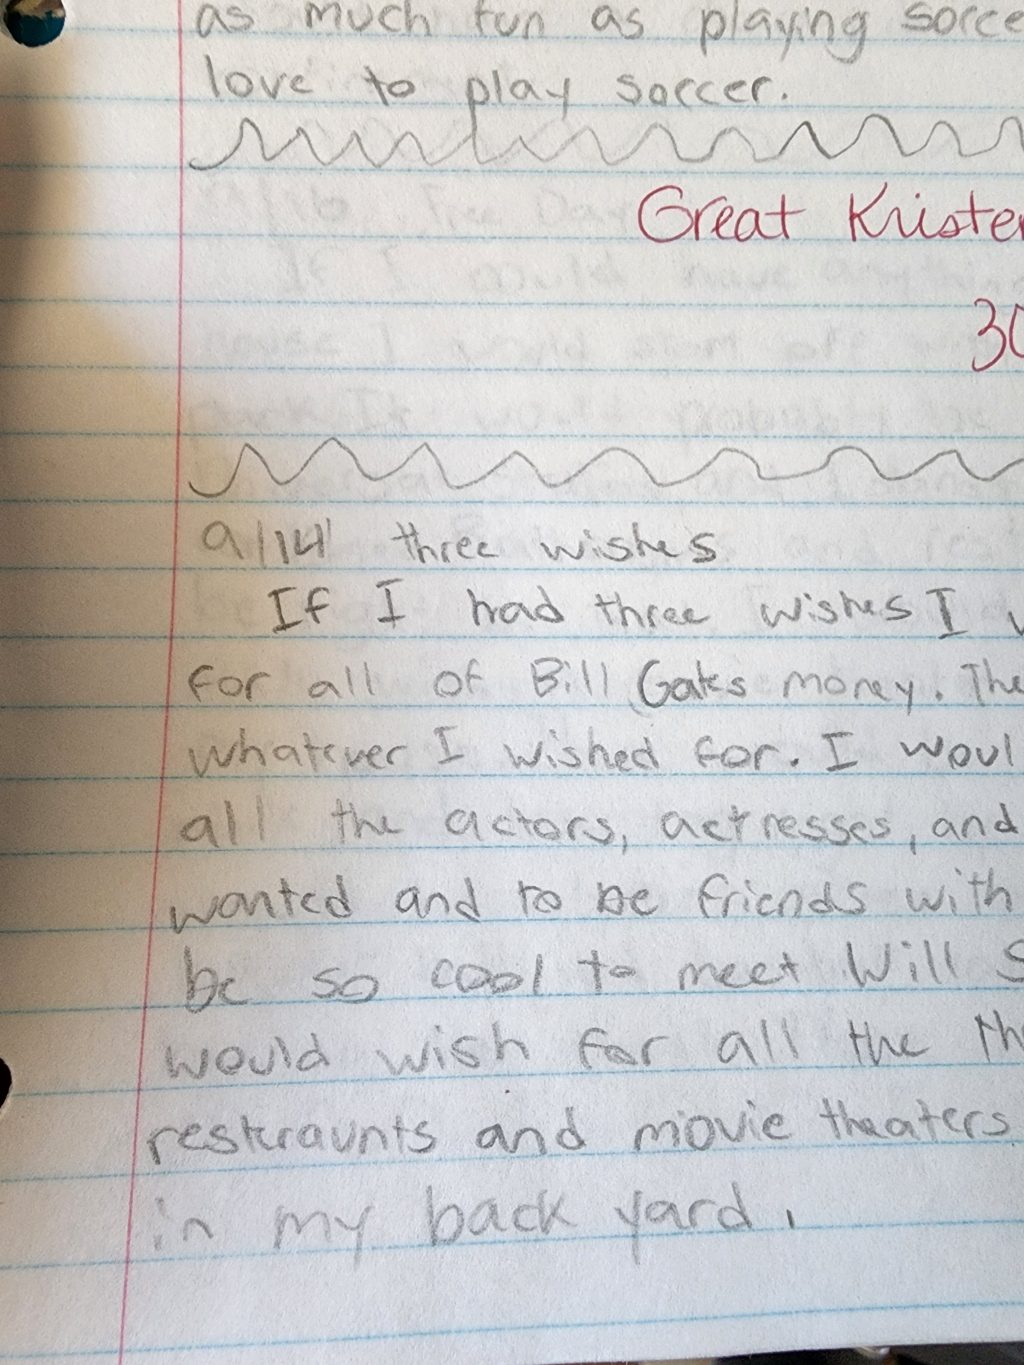 as much fun as playing sorcce
love to play soccer.
Great Kristen
30
9/14 three wishes
If I had three wishes I w
for all of Bill Gates money. The
whatever I wished for. I woul
all the actors, actresses, and
wanted and to be friends with
be so cool to meet Will S
would wish for all the th
resteraunts and movie theaters
in my back yard.